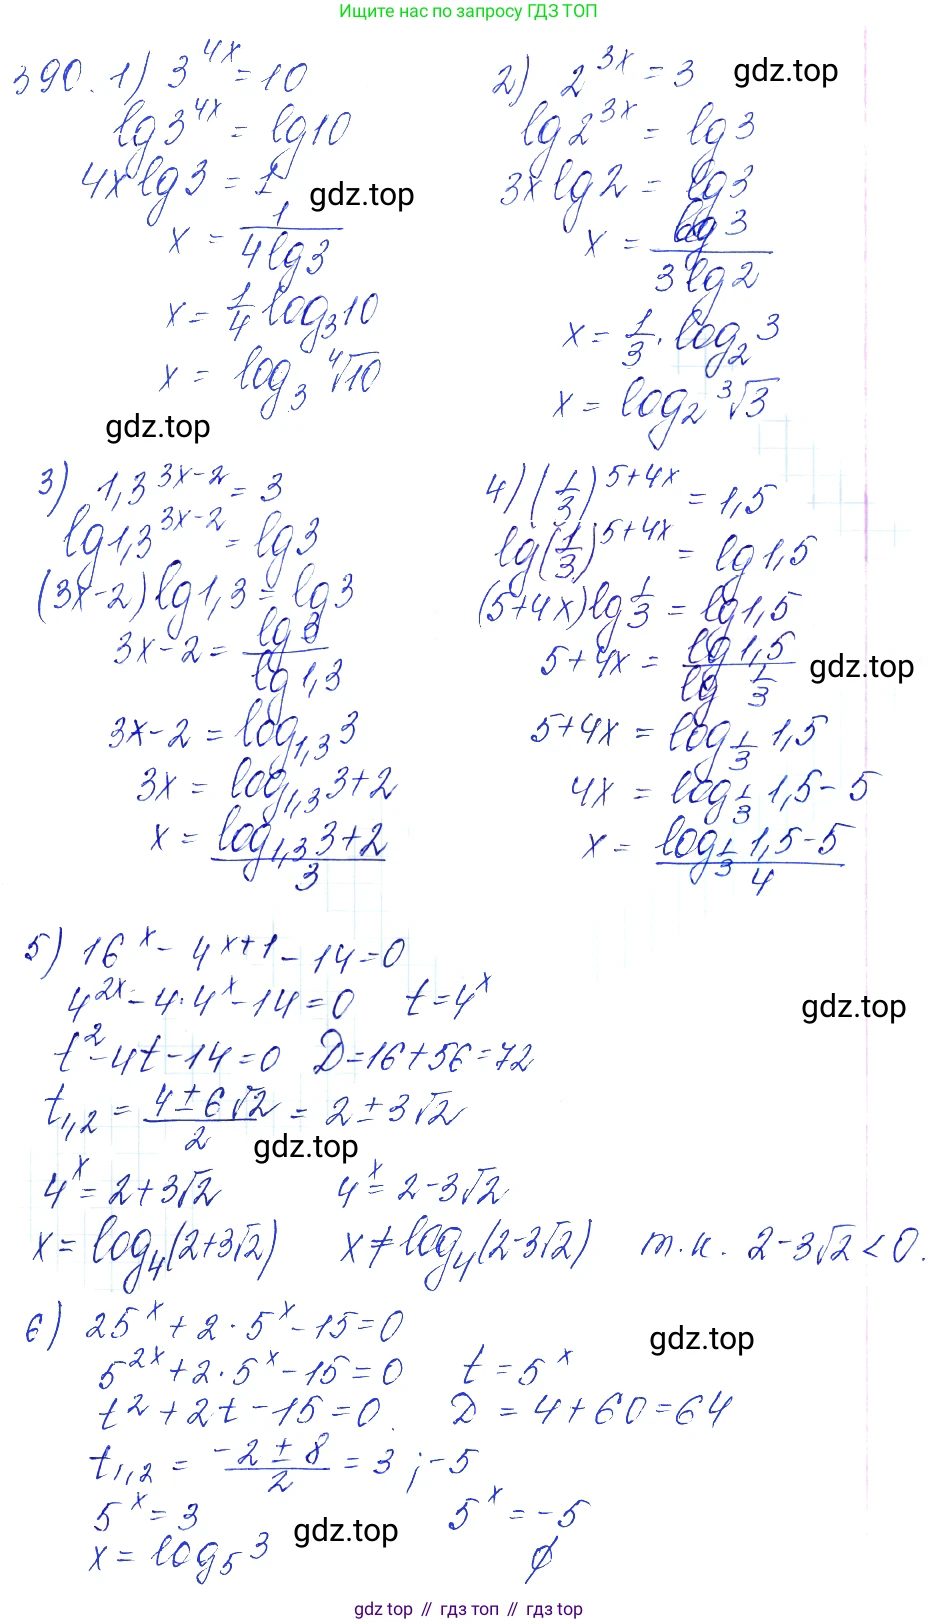 Ищите нас по запросу ГДЗ ТОП
390. 1) 3^{4x} = 10
lg 3^{4x} = lg 10
4x lg 3 = 1
gdz.top
x = \frac{1}{4 lg 3}
x = \frac{1}{4} log_3 10
x = log_3 \sqrt[4]{10}
gdz.top
2) 2^{3x} = 3
gdz.top
lg 2^{3x} = lg 3
3x lg 2 = lg 3
x = \frac{lg 3}{3 lg 2}
x = \frac{1}{3} · log_2 3
x = log_2 \sqrt[3]{3}
3) 1,3^{3x-2} = 3
lg 1,3^{3x-2} = lg 3
(3x-2) lg 1,3 = lg 3
3x-2 = \frac{lg 3}{lg 1,3}
3x-2 = log_{1,3} 3
3x = log_{1,3} 3+2
x = \frac{log_{1,3} 3+2}{3}
4) (\frac{1}{3})^{5+4x} = 1,5
lg (\frac{1}{3})^{5+4x} = lg 1,5
(5+4x) lg \frac{1}{3} = lg 1,5
5+4x = \frac{lg 1,5}{lg \frac{1}{3}}
gdz.top
5+4x = log_{\frac{1}{3}} 1,5
4x = log_{\frac{1}{3}} 1,5-5
x = \frac{log_{\frac{1}{3}} 1,5-5}{4}
5) 16^x - 4^{x+1} - 14 = 0
4^{2x} - 4·4^x - 14 = 0 t = 4^x
gdz.top
t^2 - 4t - 14 = 0 D = 16+56 = 72
t_{1,2} = \frac{4 ± 6\sqrt{2}}{2} = 2 ± 3\sqrt{2}
gdz.top
4^x = 2+3\sqrt{2} 4^x = 2-3\sqrt{2}
x = log_4 (2+3\sqrt{2}) x ≠ log_4 (2-3\sqrt{2}) т.к. 2-3\sqrt{2} < 0.
6) 25^x + 2·5^x - 15 = 0
gdz.top
5^{2x} + 2·5^x - 15 = 0 t = 5^x
t^2 + 2t - 15 = 0. D = 4+60 = 64
t_{1,2} = \frac{-2 ± 8}{2} = 3 ; -5
5^x = 3 5^x = -5
gdz.top
x = log_5 3 ∅
gdz top // гдз топ // gdz top